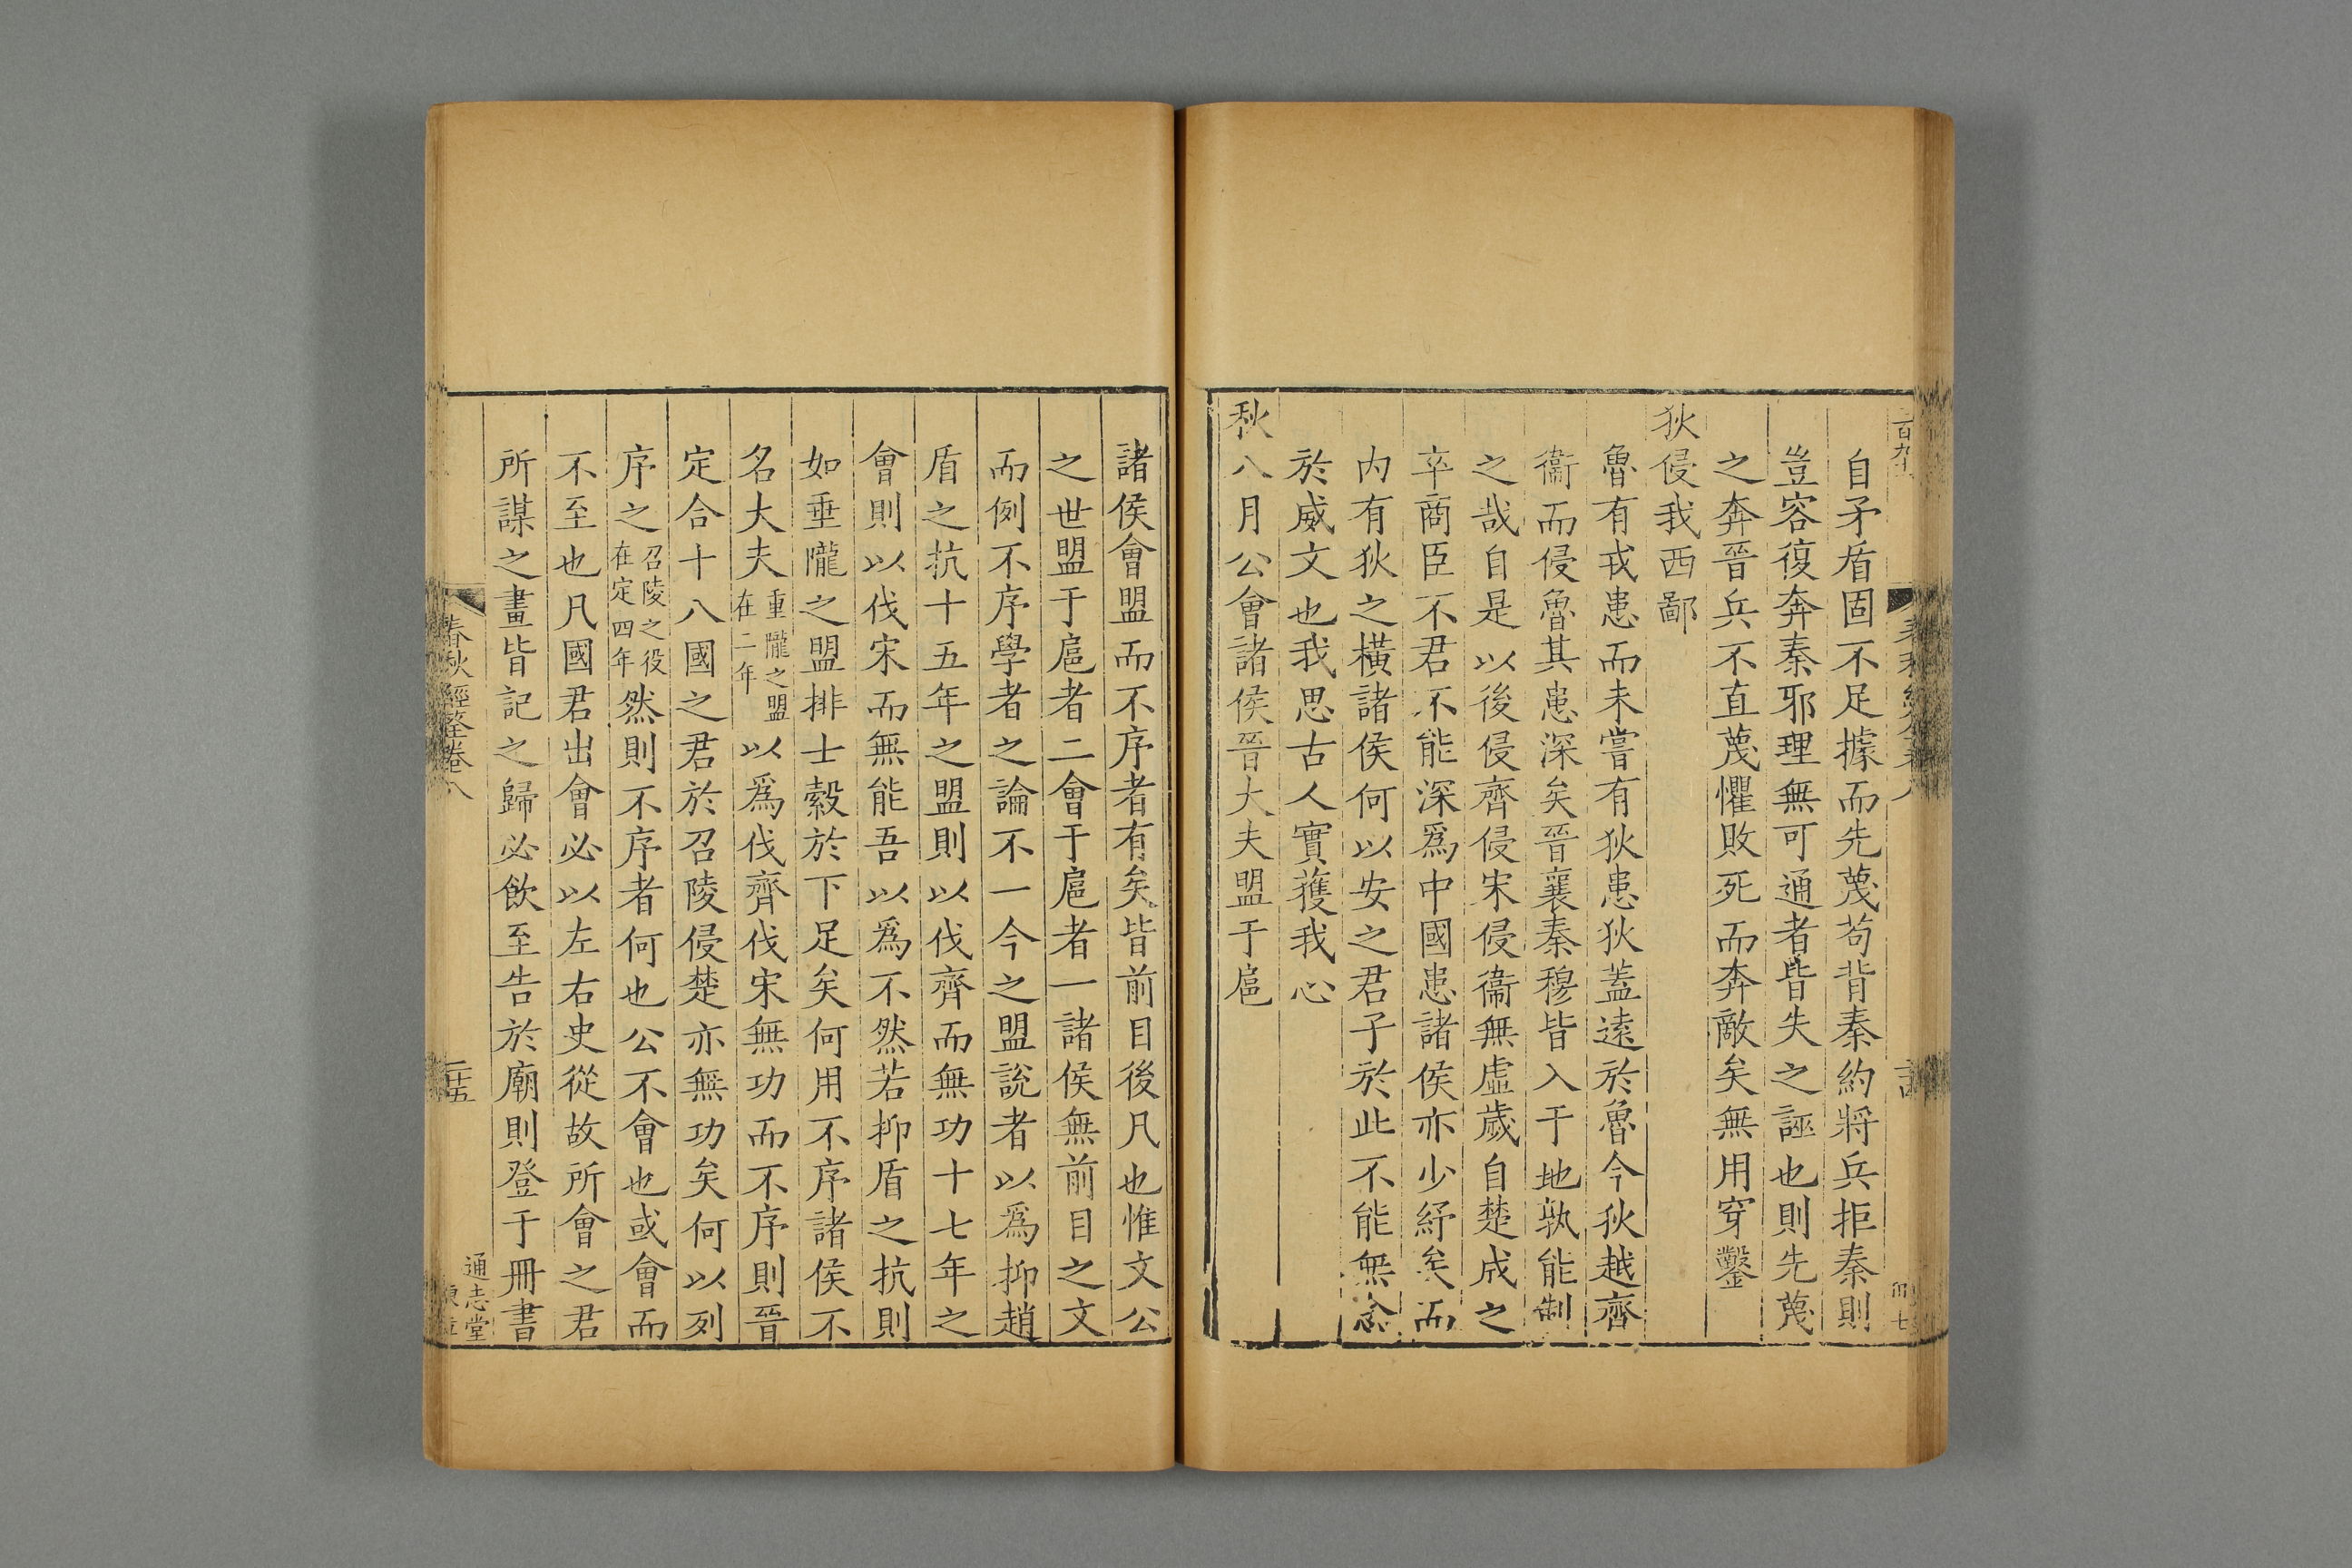 自矛盾固不足據而先蔑苟背秦約將兵拒秦則
豈容復奔秦邪理無可通者皆失之誣也則先蔑
之奔晉兵不直蔑懼敗死而奔敵矣無用穿鑿
狄侵我西鄙
魯有戎患而未嘗有狄患狄蓋遠於魯今狄越齊
衞而侵魯其患深矣晉襄秦穆皆入于地孰能制
之哉自是以後侵齊侵宋侵衞無虛歲自楚成之
卒商臣不君不能深爲中國患諸侯亦少紓矣而
内有狄之橫諸侯何以安之君子於此不能無念
於威文也我思古人實獲我心
秋八月公會諸侯晉大夫盟于扈
諸侯會盟而不序者有矣皆前目後凡也惟文公
之世盟于扈者二會于扈者一諸侯無前目之文
而例不序學者之論不一今之盟說者以爲抑趙
盾之抗十五年之盟則以伐齊而無功十七年之
會則以伐宋而無能吾以爲不然若抑盾之抗則
如垂隴之盟排士縠於下足矣何用不序諸侯不
名大夫垂隴之盟在二年以爲伐齊伐宋無功而不序則晉
定合十八國之君於召陵侵楚亦無功矣何以列
序之召陵之役在定四年然則不序者何也公不會也或會而
不至也凡國君出會必以左右史從故所會之君
所謀之畫皆記之歸必飲至告於廟則登于冊書
春秋經筌卷八
二十五
通志堂